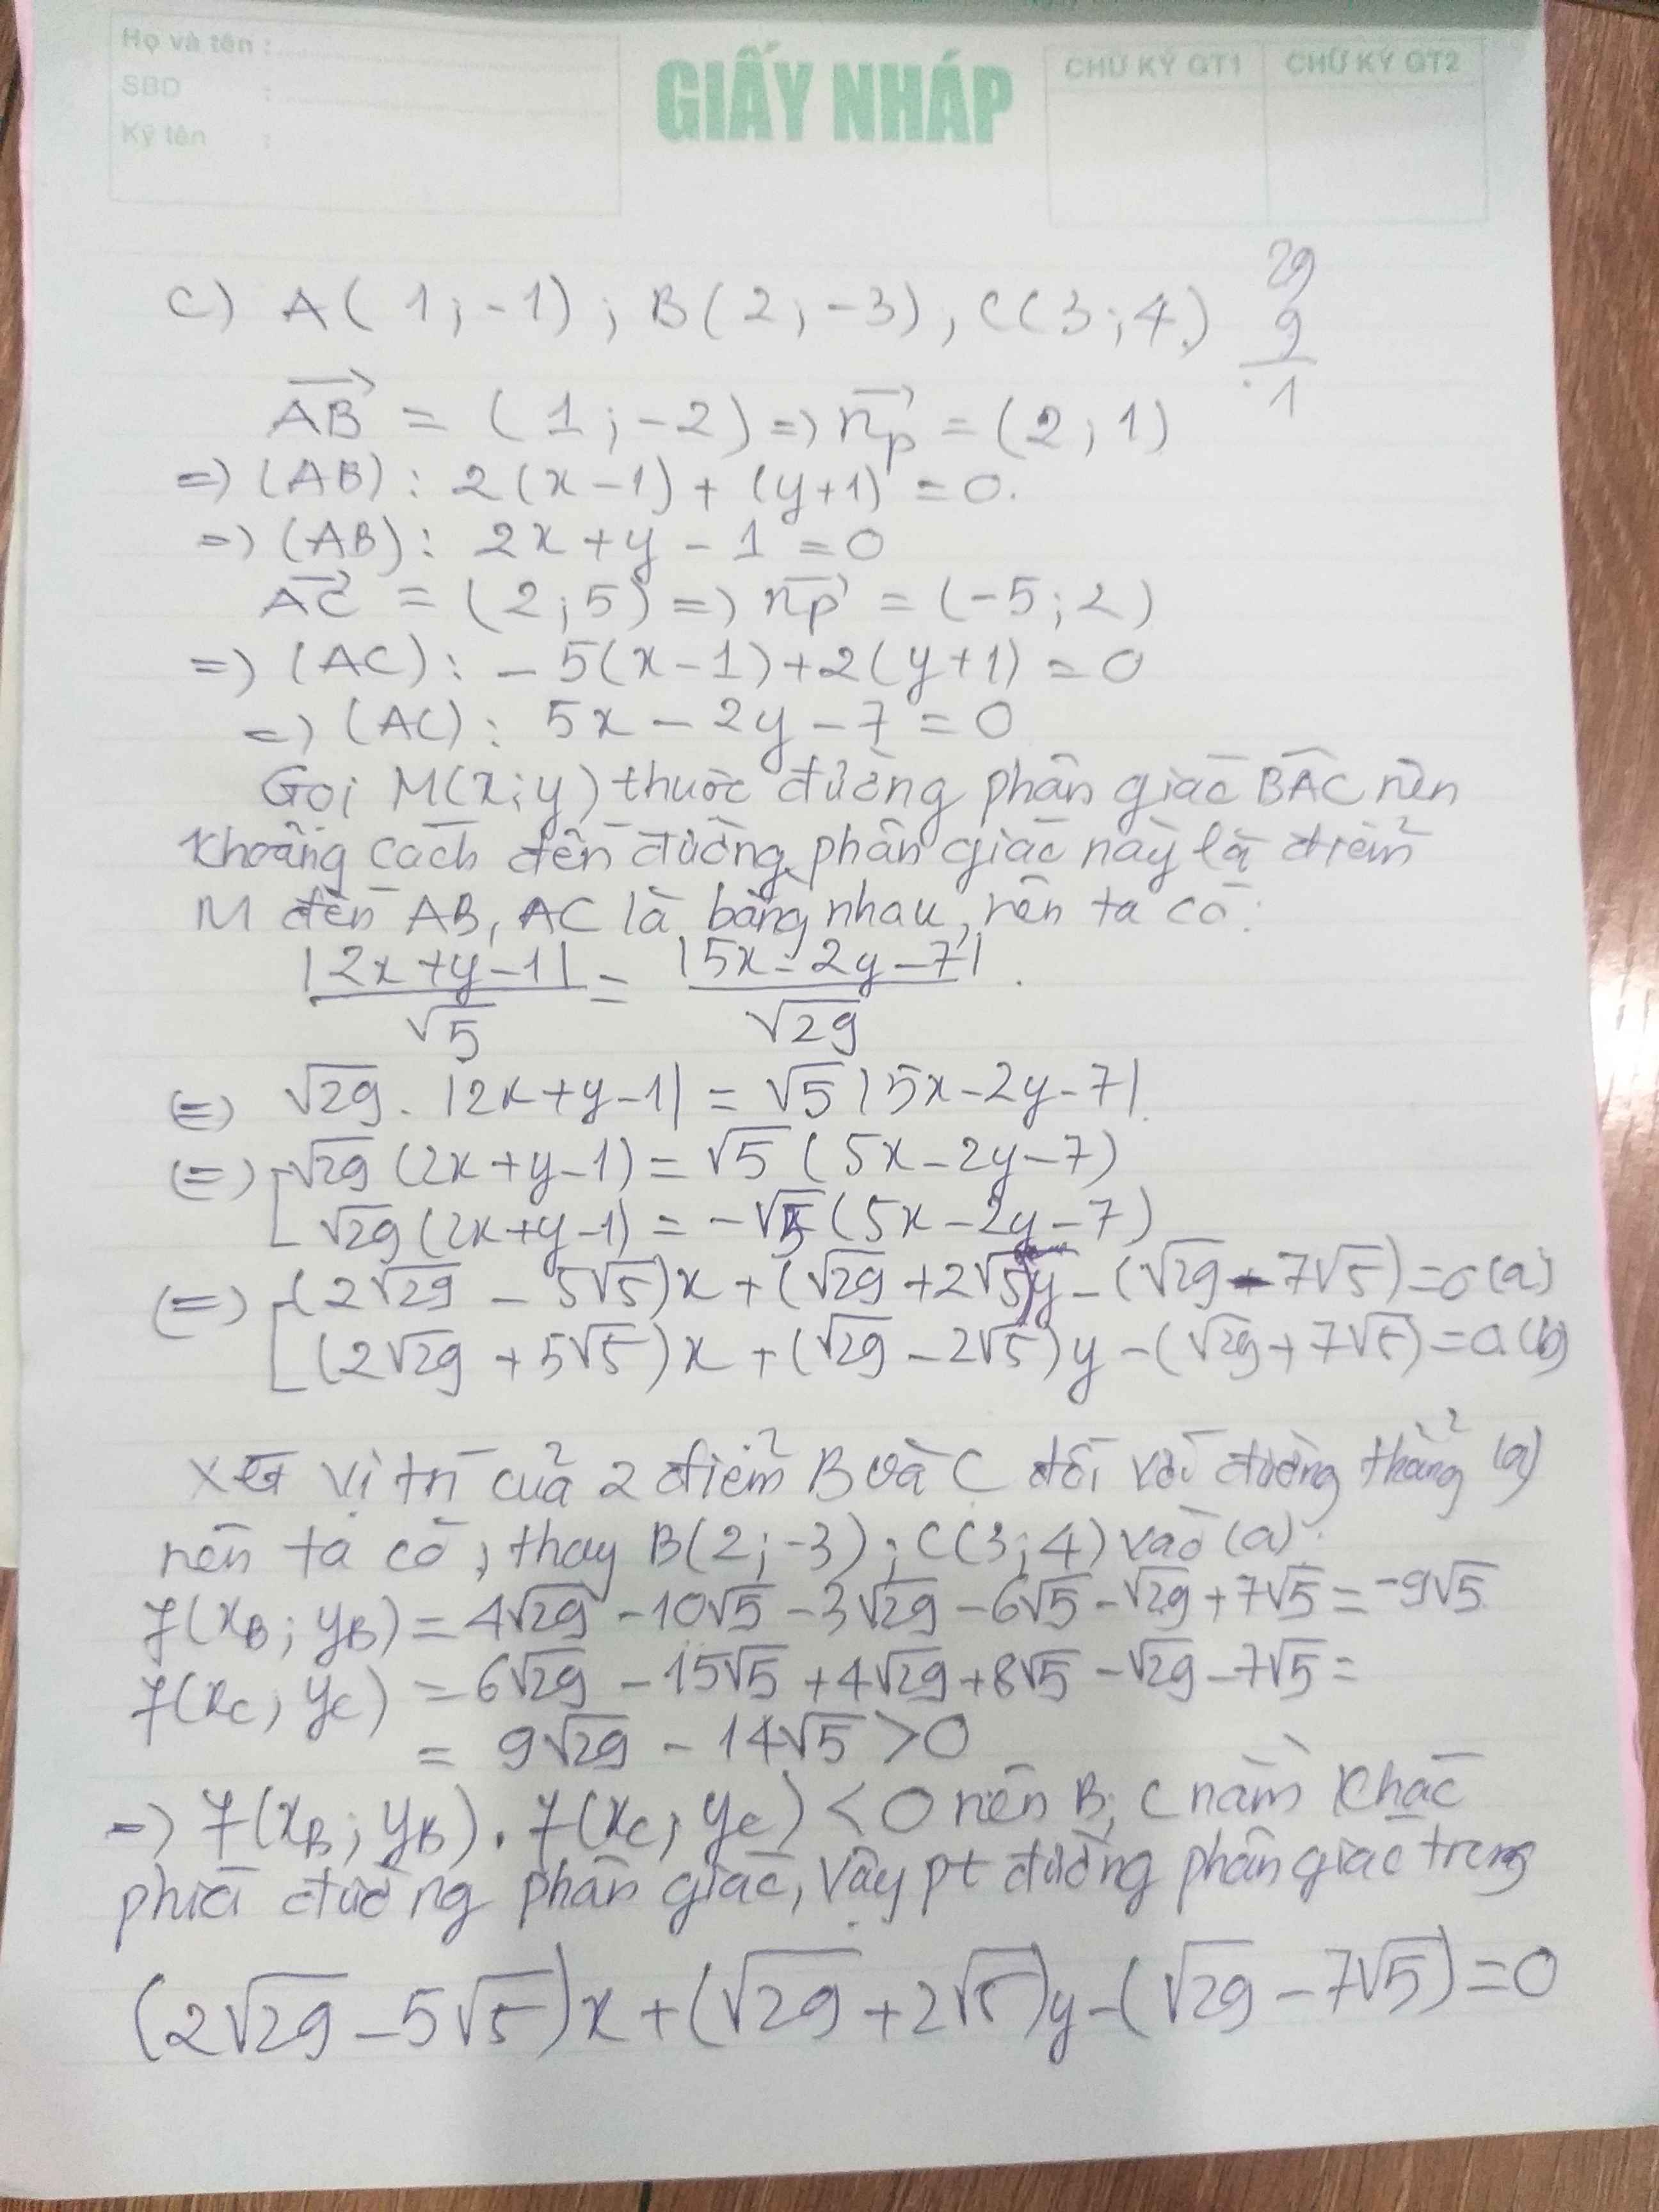 Họ và tên :
SBD :
Ký tên :
GIẤY NHÁP
CHỮ KÝ GT1
CHỮ KÝ GT2
c) A(1;-1); B(2;-3), C(3;4)
29
9
1
AB⃗ = (1;-2) => n⃗p = (2;1)
=> (AB): 2(x-1) + (y+1) = 0.
=> (AB): 2x+y-1=0
AC⃗ = (2;5) => n⃗p = (-5;2)
=> (AC): -5(x-1)+2(y+1)=0
=> (AC): 5x-2y-7=0
Gọi M(x;y) thuộc đường phân giác BAC nên
khoảng cách đến đường phân giác này là điểm
M đến AB, AC là bằng nhau, nên ta có:
|2x+y-1|/√5 = |5x-2y-7|/√29.
(=) √29.|2x+y-1| = √5|5x-2y-7|
(=) [ √29(2x+y-1) = √5(5x-2y-7)
√29(2x+y-1) = -√5(5x-2y-7)
(=) [ (2√29 - 5√5)x+(√29+2√5)y-(√29-7√5)=0(a)
(2√29+5√5)x+(√29-2√5)y-(√29+7√5)=0(b)
Xét vị trí của 2 điểm B và C đối với đường thẳng (a)
nên ta có, thay B(2;-3); C(3;4) vào (a):
f(xB;yB)=4√29-10√5-3√29-6√5-√29+7√5=-9√5
f(xC;yC)=6√29-15√5+4√29+8√5-√29-7√5=
= 9√29-14√5>0
=> f(xB;yB).f(xC;yC)<0 nên B, C nằm khác
phía đường phân giác, vậy pt đường phân giác trong
(2√29-5√5)x+(√29+2√5)y-(√29-7√5)=0